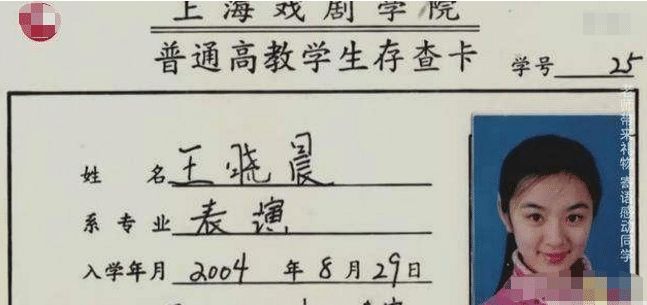 上海戏剧学院
普通高教学生存查卡
学号 25
姓名 王晓晨
系专业 表演
入学年月 2004 年 8 月 29 日
老师带来礼物 寄语感动同学